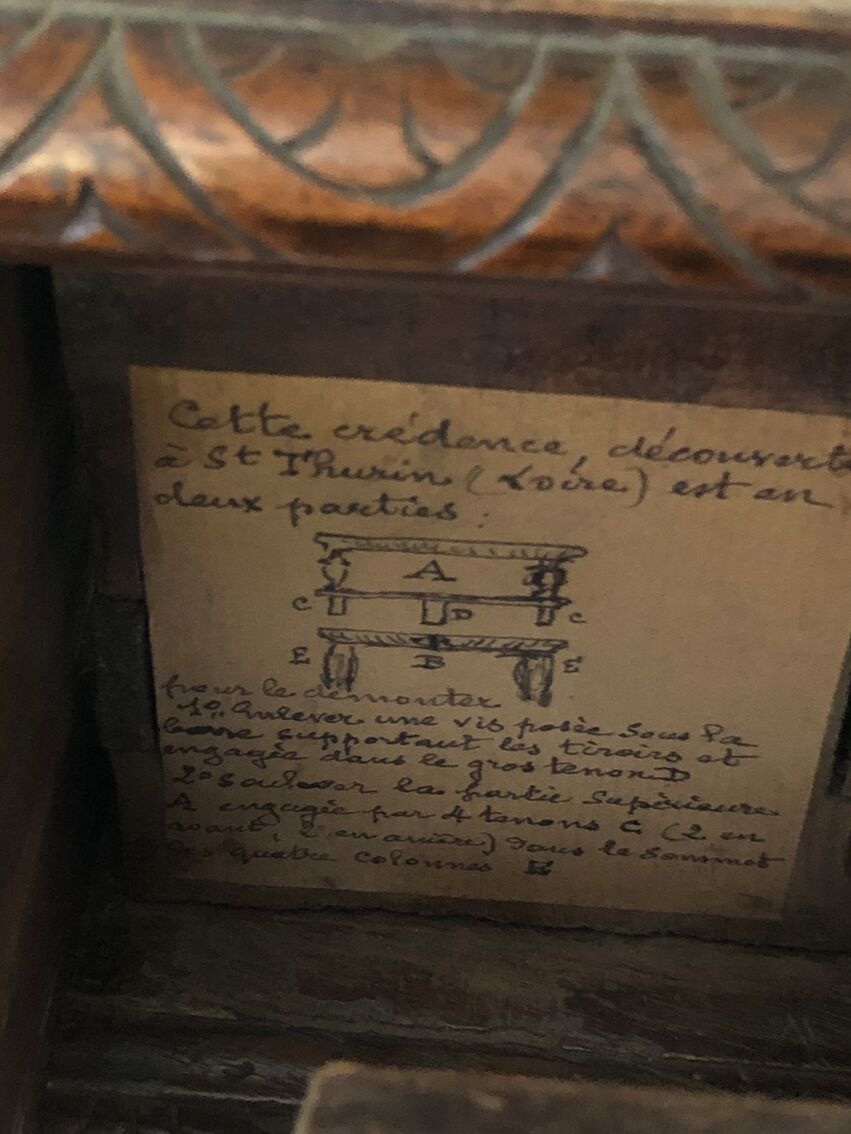 Cette crédence, découverte
à St Thurin (Loire) est en
deux parties :
A
C D C
E B E
pour le démonter
1º Enlever une vis posée sous la
supportant les tiroirs et
engagée dans le gros tenon D
2º Soulever la partie supérieure
A engagée par 4 tenons C (2 en
avant, 2 en arrière) dans le sommet
des quatre colonnes E